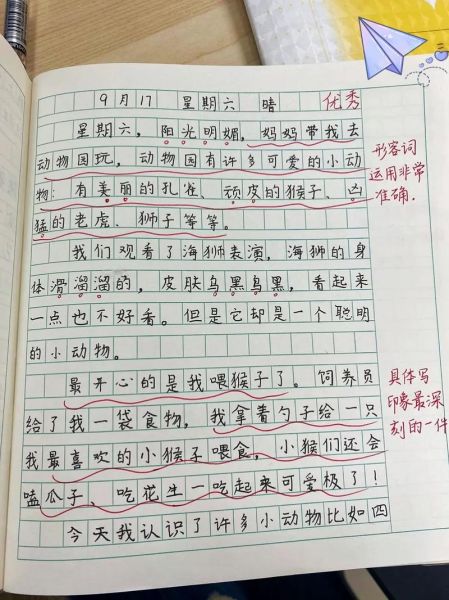 9月17 星期六 晴 优秀
星期六，阳光明媚，妈妈带我去
动物园玩，动物园有许多可爱的小动
物：有美丽的孔雀、顽皮的猴子、凶
猛的老虎、狮子等等。
形容词
运用非常
准确.
我们观看了海狮表演，海狮的身
体滑溜溜的，皮肤乌黑乌黑，看起来
一点也不好看。但是它却是一个聪明
的小动物。
最开心的是我喂猴子了。饲养员
给了我一袋食物，我拿着勺子给一只
我最喜欢的小猴子喂食，小猴们还会
嗑瓜子、吃花生一吃起来可爱极了！
具体写
印象最深
刻的一件
今天我认识了许多小动物比如四